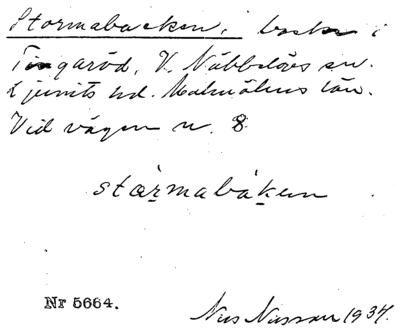 Stormabacken, backe i
Tingaröd, V. Nöbbelövs sn.
Ljunits hd. Malmöhus län.
Vid vägen n. 8
stårmabaken
Nr 5664.
Nils Nilsson 1934.